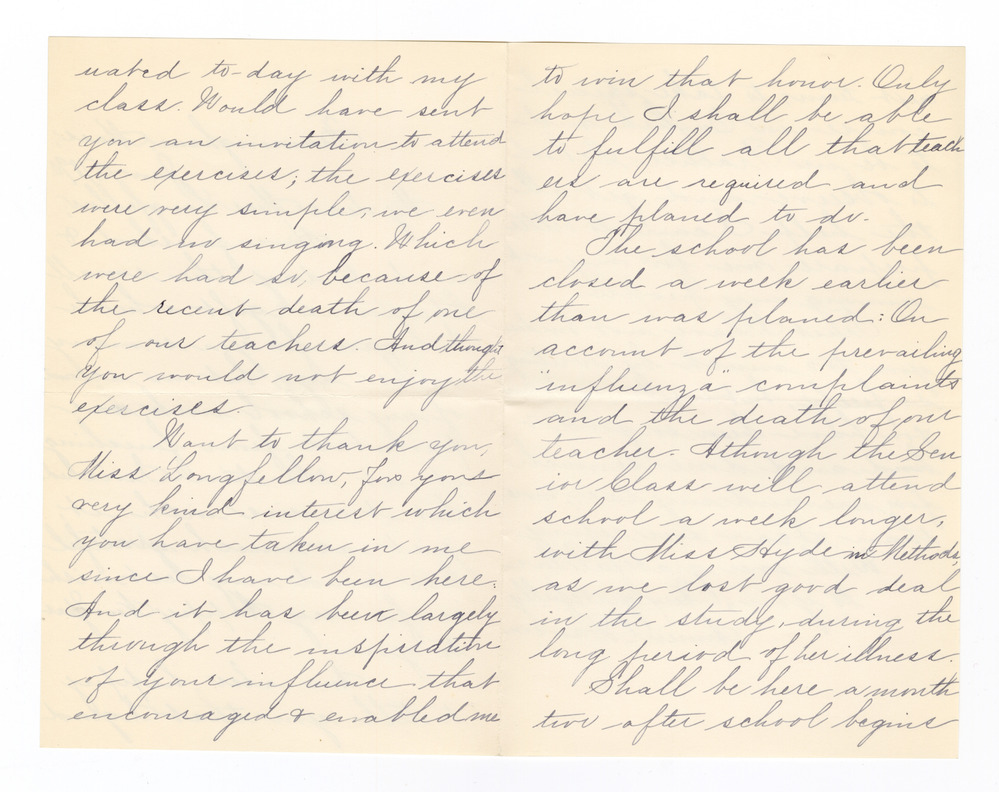 uated to-day with my
class. Would have sent
you an invitation to attend
the exercises; the exercises
were very simple, we even
had no singing. Which
were had so, because of
the recent death of one
of our teachers. And thought
you would not enjoy the
exercises.
Want to thank you,
Miss Longfellow, for your
very kind interest which
you have taken in me
since I have been here.
And it has been largely
through the inspiration
of your influence that
encouraged & enabled me
to win that honor. Only
hope I shall be able
to fulfill all that teach
ers are required and
have planed to do.
The school has been
closed a week earlier
than was planed: On
account of the prevailing
"influenza" complaints
and the death of our
teacher. Although the Sen
ior Class will attend
school a week longer,
with Miss Hyde in Methods,
as we lost good deal
in the study, during the
long period of her illness.
Shall be here a month
two after school begins